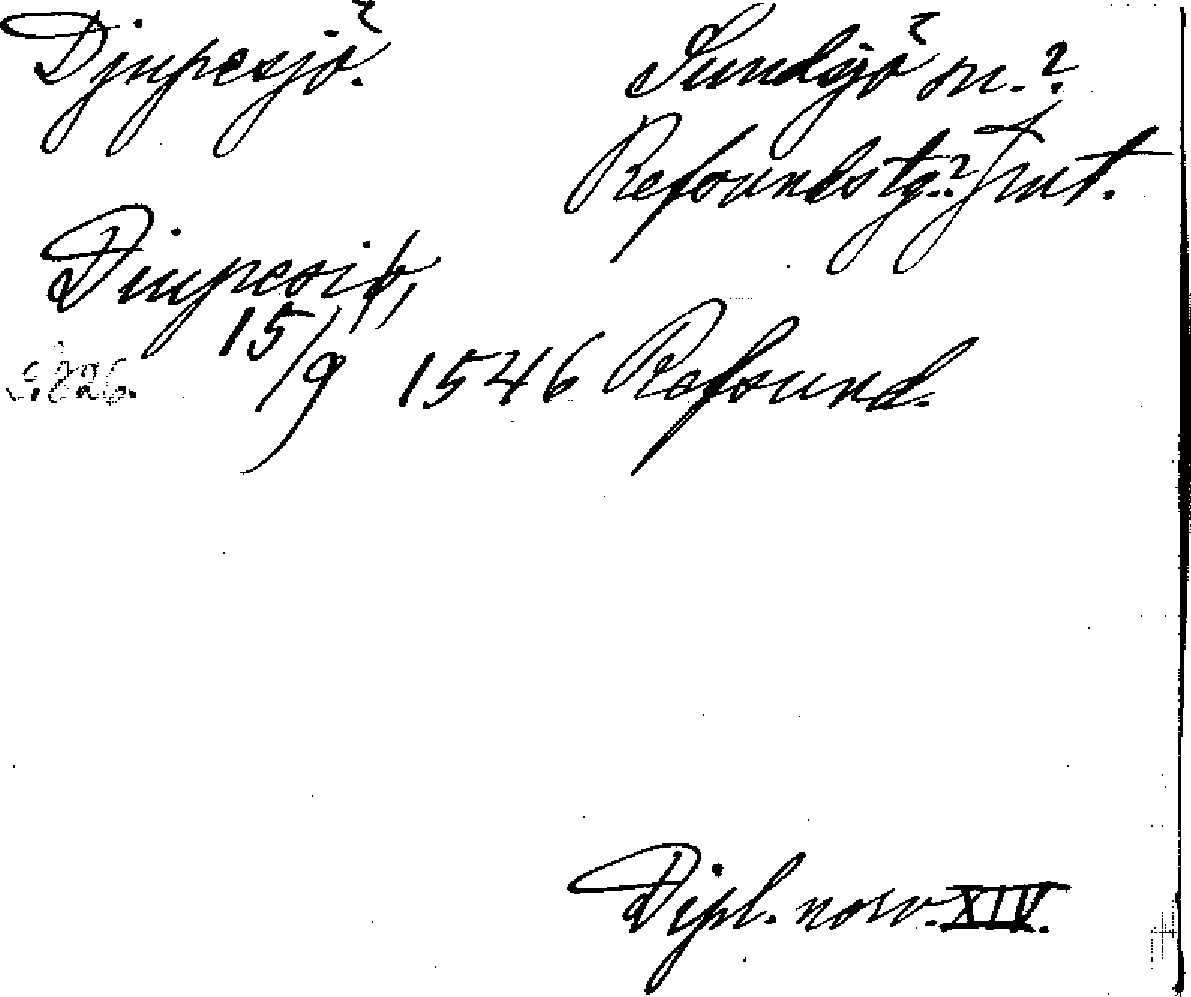 Djupesjö. Sundsjö sn.?
Refsunds tg.? Jmt.
Diupesiø,
s. 826. 15/9 1546 Refsund.
Dipl. norv. XIV.